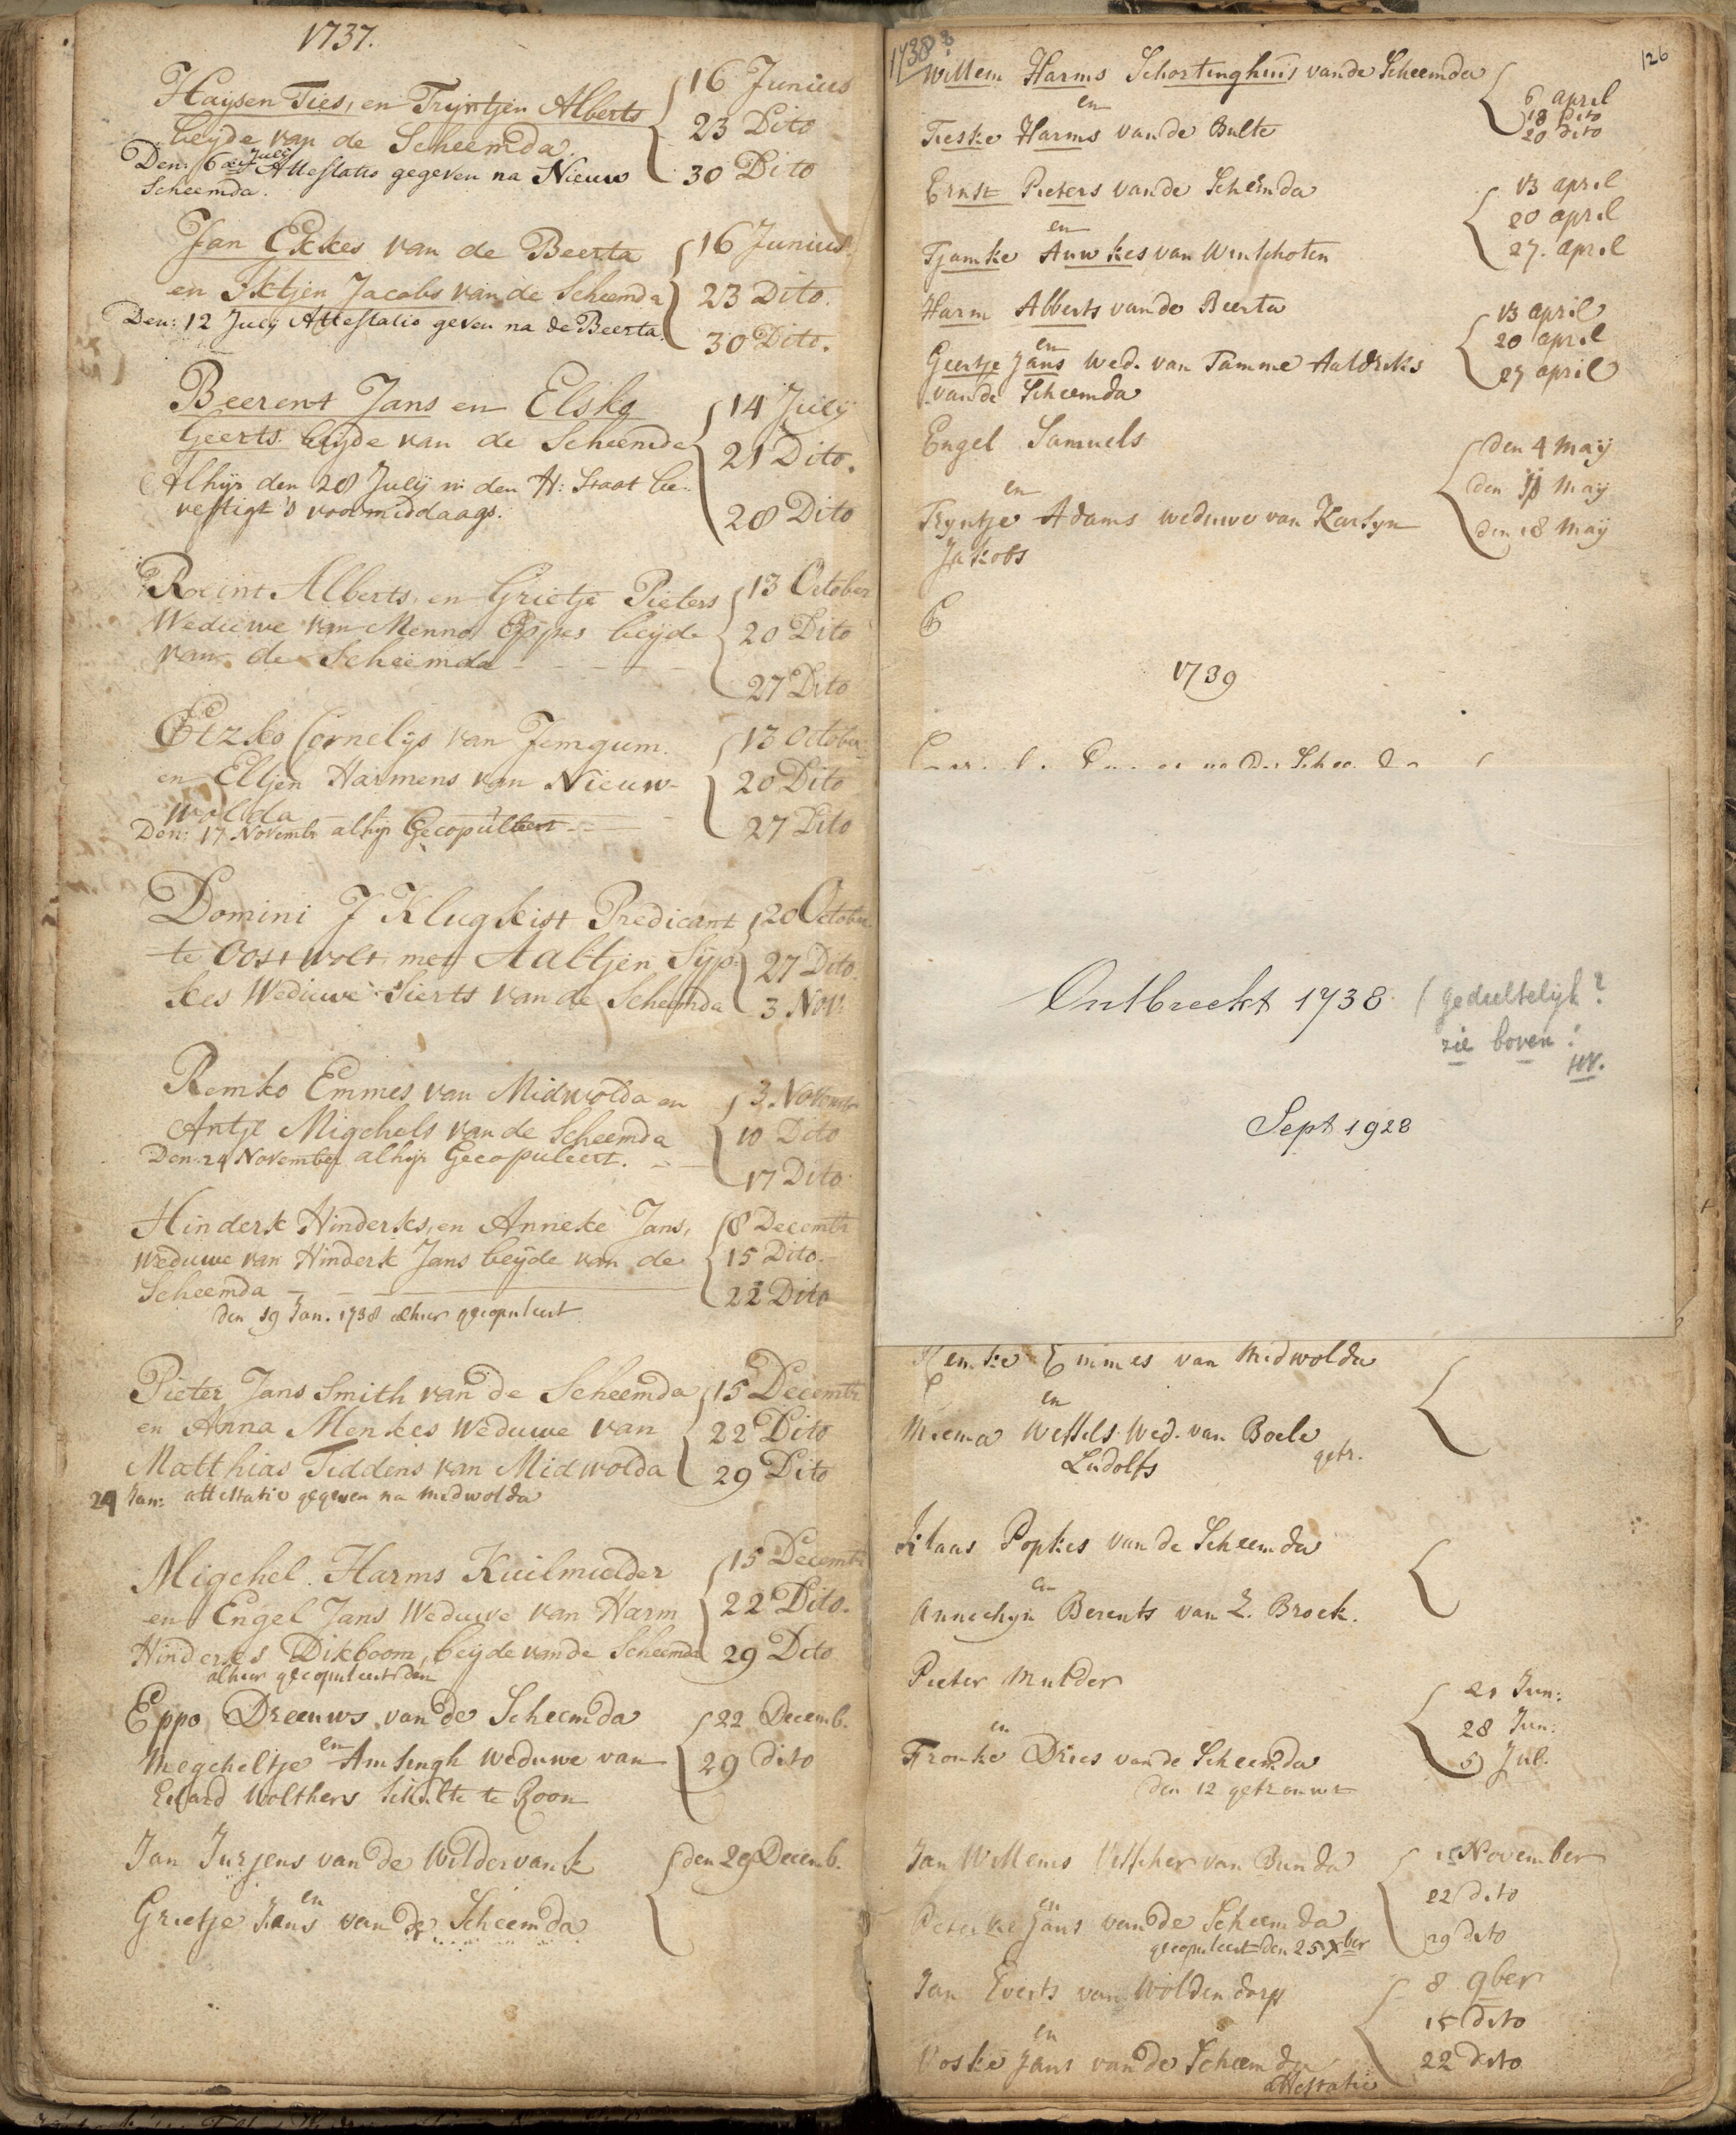 1737.
Haijsen Ties, en Trijntjen Alberts
beijde van de Scheemda.
Den: 6 Julij Attestatio gegeven na Nieuw
Scheemda.
16 Junius
23 Dito
30 Dito
Jan Ekkes van de Beerta
en Iktjen Jacobs van de Scheemda
Den: 12 Julij Attestatio geven na de Beerta.
16 Junius.
23 Dito.
30 Dito.
Beerent Jans en Elske
Geerts beijde van de Scheemda
Alhijr den 28 Julij in den H: Staat be-
vestigt 's voormiddaags.
14 Julij
21 Dito.
28 Dito
Roeint Alberts, en Grietje Pieters
Weduwe van Menno Eppes beijde
van de Scheemda
13 October
20 Dito
27 Dito
Etzko Cornelijs van Jemgum.
en Eltjen Harmens van Nieuw-
wolda
Den: 17 Novembr alhijr Gecopuleert
13 October
20 Dito
27 Dito
Domini J Klugkist Predicant
te Oostwolt met Aaltjen Sijp-
kes Weduwe Sierts van de Scheemda
20 October
27 Dito.
3 Nov:
Remko Emmes van Midwolda en
Antje Migchels van de Scheemda
Den: 24 November alhijr Gecopuleert.
3 November
10 Dito
17 Dito
Hinderk Hinderks, en Anneke Jans,
weduwe van Hinderk Jans beijde van de
Scheemda
den 19 Jan. 1738 alhier gecopuleert
8 Decembr
15 Dito.
22 Dito
Pieter Jans Smith van de Scheemda
en Anna Menkes Weduwe van
Matthias Tiddens van Midwolda
24 Jan: attestatie gegeven na Midwolda
15 Decembr
22 Dito
29 Dito
Migchel Harms Kuilmulder
en Engel Jans Weduwe van Harm
Hinderks Dikboom, beijde van de Scheemda
alhier gecopuleert den
15 Decembr
22 Dito.
29 Dito
Eppo Dreeuws van de Scheemda
en
Megcheltje Amsingh weduwe van
Edzard Wolthers Schulte te Roon
22 Decemb.
29 dito
Jan Jurjens van de Wildervank
en
Grietje Jans van de Scheemda
den 29 Decemb.
1738
126
Willem Harms Schortinghuis van de Scheemda
en
Fieske Harms van de Bulte
6 april
13 dito
20 dito
Ernst Pieters van de Scheemda
en
Tjamke Auwkes van Winschoten
13 april
20 april
27. april
Harm Alberts van de Beerta
en
Geertje Jans Wed. van Tamme Aaldriks
van de Scheemda
13 april
20 april
27 april
Engel Samuels
en
Tryntje Adams weduwe van Karsyn
Jakobs
den 4 Maij
den 11 Maij
den 18 Maij
E
1739
Ontbreekt 1738. (gedeeltelijk?
zie boven!
Sept 1928
Remke Emmes van Midwolda
en
Miema Wessels Wed. van Boele
Ludolfs
getr.
Klaas Popkes van de Scheemda
en
Annechyn Berents van Z. Broek.
Pieter Mulder
en
Frouke Dries van de Scheemda
den 12 getrouwt
21 Jun:
28 Jun:
5 Jul.
Jan Willems Visscher van Bunda
en
Jans van de Scheemda
gecopuleert den 25 Xber
15 November
22 dito
29 dito
Jan Everts van Woldendorp
en
Voske Jans van de Scheemda
attestatie
8 9ber
15 dito
22 dito